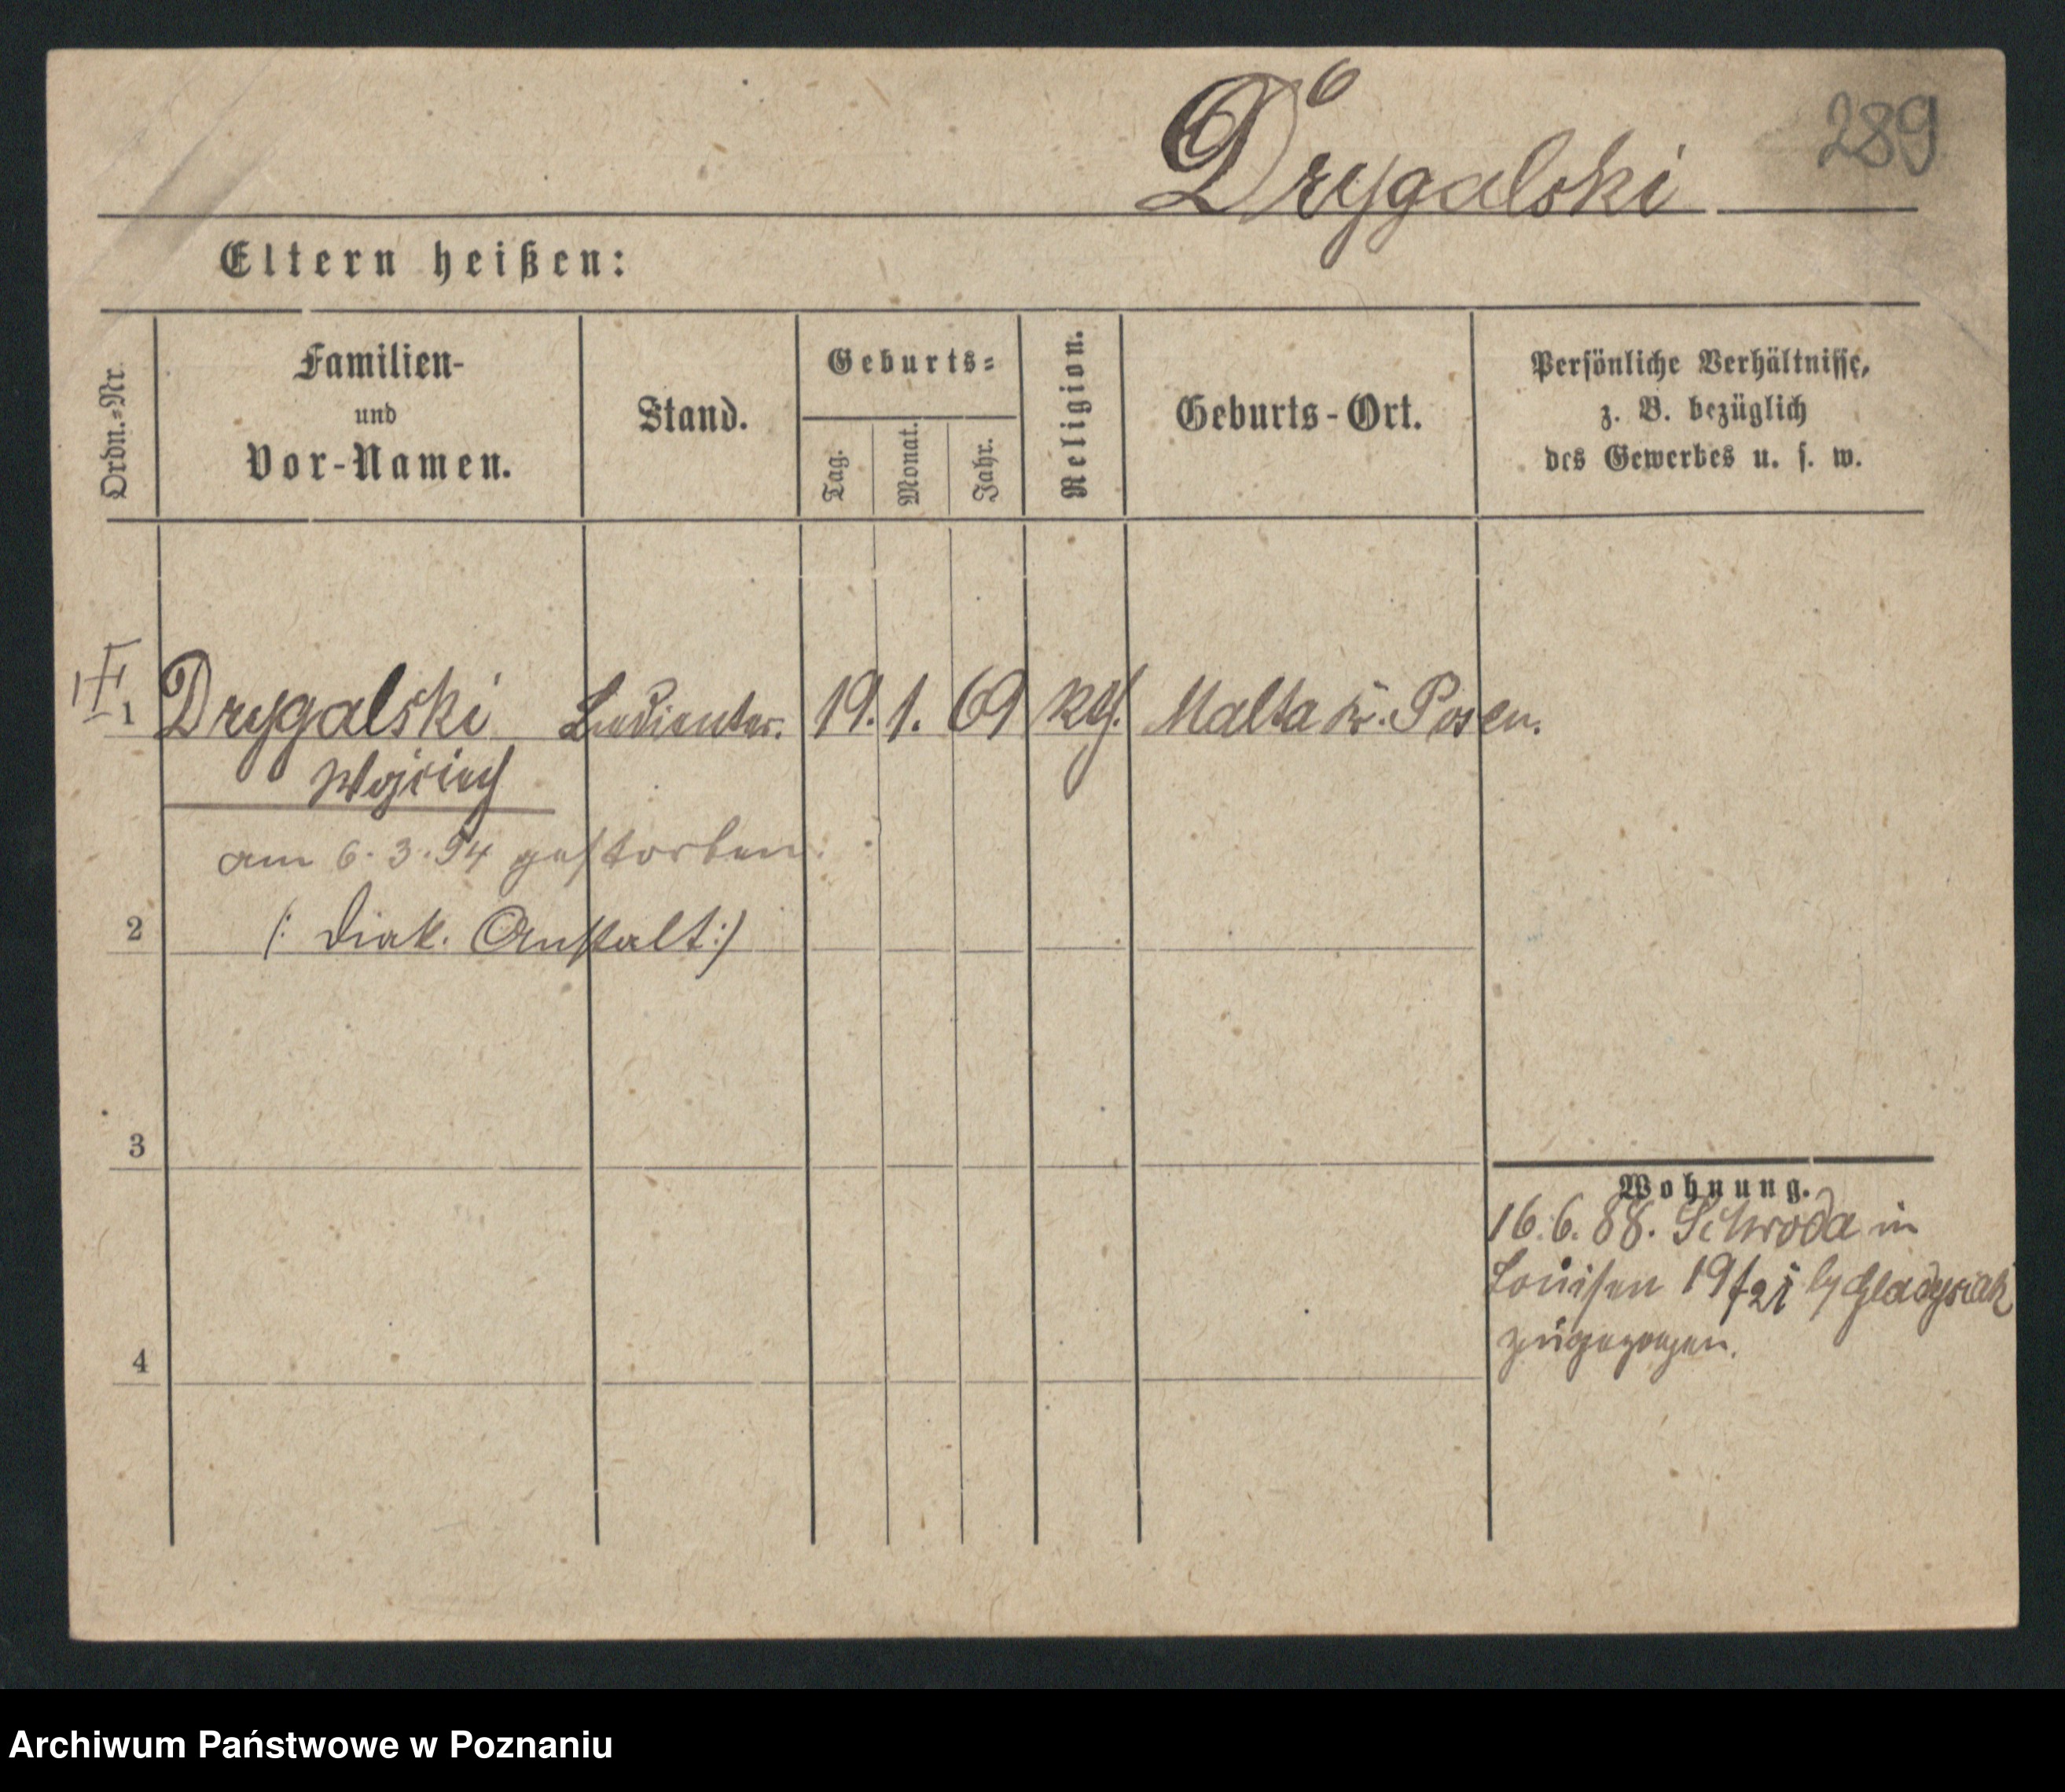 6
289
Drygalski
Eltern heißen:
Ordn.=Nr.
Familien-
und
Vor-Namen.
Stand.
Geburts=
Tag.
Monat.
Jahr.
Religion.
Geburts-Ort.
Persönliche Verhältnisse,
z. B. bezüglich
des Gewerbes u. s. w.
1 Drygalski 19. 1. 69 Malta Kr. Posen.
am 6. 3. 94 gestorben.
2 (: Diak. Anstalt :)
3
Wohnung.
16. 6. 88. Schroda in
Louisen 19/21 Gladysiak
zugezogen.
4
Archiwum Państwowe w Poznaniu